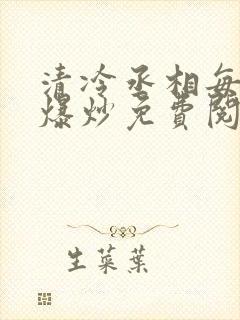 清冷丞相每
爆炒免費閱
生菜葉